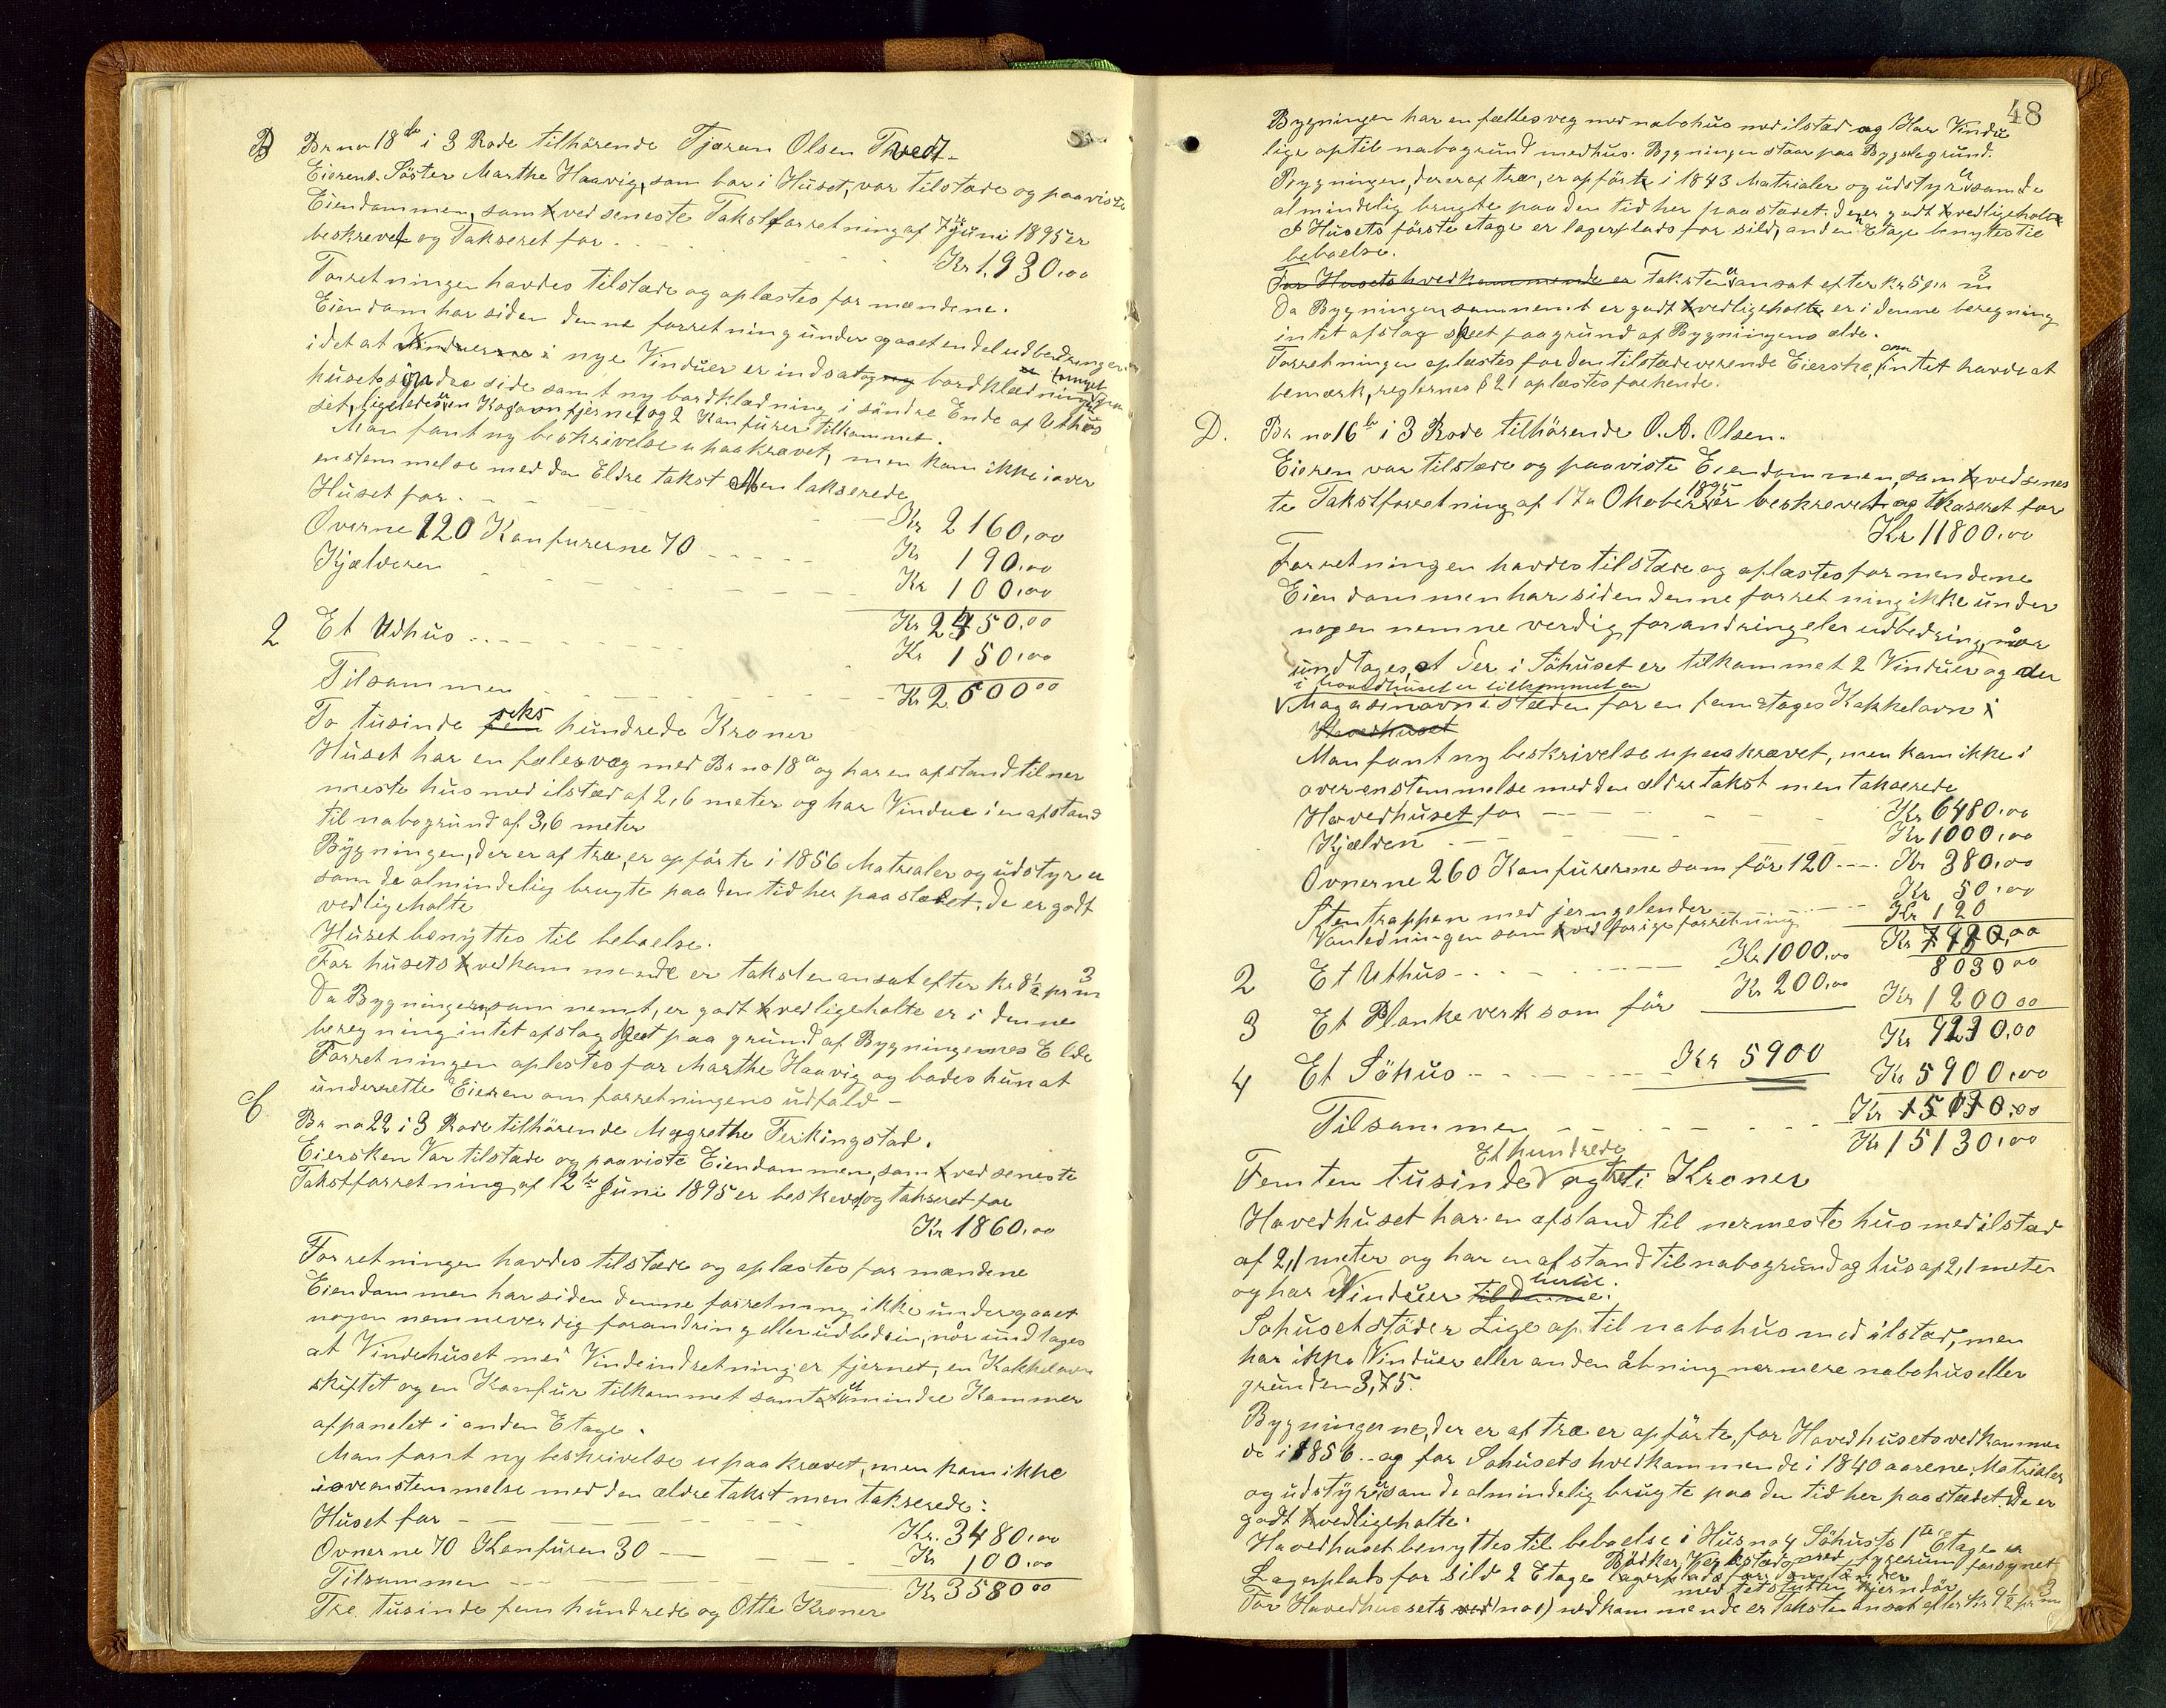 B Br no 18 b i 3 Rode tilhörende Tjæran Olsen Thvedt.
Eierens Söster Marthe Haavig, som bor i Huset, var tilstæde og paaviste
Eiendommen, som ved seneste Takstforretning af 7de juni 1895 er
beskrevet og Takseret for . . . Kr 1,930,00
Forretningen havdes tilstæde og oplæstes for mændene.
Eiendom har siden denne forretning undergaaet en del udbedringer
idet at Vinduerne i nye Vinduer er indsat og ny bordklædning paa
husets söndre side samt ny bordklædning i söndre Ende af Uthus
set, ligeledes en Kogeovn fjernet og 2 Komfurer tilkommet.
Man fant ny beskrivelse upaakrævet, men kom ikke i over
enstemmelse med den Eldre takst Men takserede
Huset for - - - Kr 2160,00
Ovnene 120 Komfurerne 70 - - - - Kr 190,00
Kjælderen - - - - Kr 100,00
Kr 2450,00
2 Et Udhus - - - - Kr 150,00
Tilsammen - - - - Kr 2600 00
To tusinde fem seks hundrede Kroner
Huset har en fælesvæg med Br no 18 a og har en afstand til ner
meste hus med ilstæd af 2,6 meter og har Vindue i en afstand
til nabogrund af 3,6 meter
Bygningen, der er af træ, er opförte i 1856 Matrialer og udstyr er
som de almindelig brugte paa den tid her paa stædet, de er godt
vedligeholte
Huset benyttes til beboelse.
For husets vedkommende er taksten ansat efter Kr 8½ pr m3
Da Bygningen, som nemt, er godt vedligeholte er i denne
beregning intet afslag skeet paa grund af Bygningernes Elde
Forretningen oplestes for Marthe Haavig og bades hun at
underrette Eieren om forretningens udfald -
C. Br no 22 i 3 Rode tilhörende Magrethe Ferkingstad.
Eiersken Var tilstæde og paaviste Eiendommen, som ved seneste
Takstforretning af 12te Juni 1895 er beskrevet og takseret for
Kr 1860,00
Forretningen havdes tilstæde og oplæstes for mændene
Eiendommen har siden denne forretning ikke undergaaet
nogen nemneverdig forandring eller udbedrin, når undtages
at Vindehuset mei Vindeindretning er fjernet, en Kakkelovn
skiftet og en Komfur tilkommet samt et mindre Kammer
afpanelet i anden Etage.
Man fant ny beskrivelse upaakrævet, men kom ikke
i overenstemmelse med den ældre takst men takserede:
Huset for - - - - Kr. 3480,00
Ovnerne 70 Komfuren 30 - - - - Kr 100,00
Tilsammen - - - Kr 3580 00
Tre tusinde fem hundrede og Otti Kroner
48
Bygningen har en fælles veg med nabohus med ilstæd og Har Vindu
lige optil nabogrund med hus. Bygningen staar paa Bygslegrund.
Bygningen, der er af træ, er opförte i 1843 Matrialer og udstyr er som de
almindelig brugte paa den tid her paa stædet. den er godt vedligeholt
I Husets förste etage er lagerplads for sild, anden Etage benyttes til
beboelse.
For Husets hvedkommende er Taksten ansat efter Kr 5 pr m3
Da Bygningen som nemt er godt vedligeholte er i denne beregning
intet afslag skeet paa grund af Bygningens ælde.
Forretningen oplæstes for den tilstædeverende Eierske, som intet havde at
bemærk, reglernes § 21 oplæstes foehende.
D. Br no 16 b i 3 Rode tilhörende O. A. Olsen.
Eieren var tilstæde og paaviste Eiendommen, som ved senes
te Takstforretning af 17n Okober 1895 er beskrevet og takseret for
Kr 11800,00
Forretningen havdes tilstæde og oplæstes for mendene
Eiendommen har siden denne forretning ikke under
nogen nemneverdig forandring eler udbedring, når
undtages, at Der i Söhuset er tilkommet 2 Vinduer og der
i hovedhuset er tilkommet en
Magasinovn istæden for en fem etages Kakkelovn i
Hovedhuset
Man fant ny beskrivelse upaakrævet, men kom ikke i
overenstemmelse med den ældre takst men takserede
Hovedhuset for - - - - Kr 6480,00
Kjælderen - - - - Kr 1000,00
Ovnerne 260 Komfurerne som för 120 - - - Kr 380,00
Stentrappen med jerngelender - - - Kr 50,00
Vanledningen som ved forige forretning Kr 120
Kr 7910,00
8030 00
2 Et Uthus - - - - Kr 1000,00
3 Et Plankeverk som för Kr 200,00 Kr 1200 00
Kr 9230,00
4 Et Söhus - - - - Kr 5900 Kr 5900,00
Kr 15110,00
Tilsammen - - - - Kr 15130,00
Femten tusinde Ethundrede og treti Kroner
Hovedhuset har en afstand til nermeste hus med ilstæd
af 2,1 meter og har en afstand til nabogrund og hus af 2,1 meter
og har Vinduer til denne.
Söhuset stöder Lige op til nabohus med ilstæd, men
har ikke Vinduer eller anden åbning nermere nabohus eller
grunden 3,75.
Bygningerne, der er af træ er opförte, for Hovedhusets vedkommen
de i 1856 .. og for Söhusets hvedkommende i 1840 aarene. Matrialer
og udstyr er som de almindelig brugte paa den tid her paa stædet. De er
godt vedligeholte.
Hovedhuset benyttes til beboelse i Hus no 4 Söhusts 1ste Etage er
Lagerplads for sild 2 Etage Bödker Verksted med fyrerum forsynet
med tetsluttet jerndör
For Hovedhusets (no 1) vedkommende er Taksten ansat efter Kr 9½ pr m3